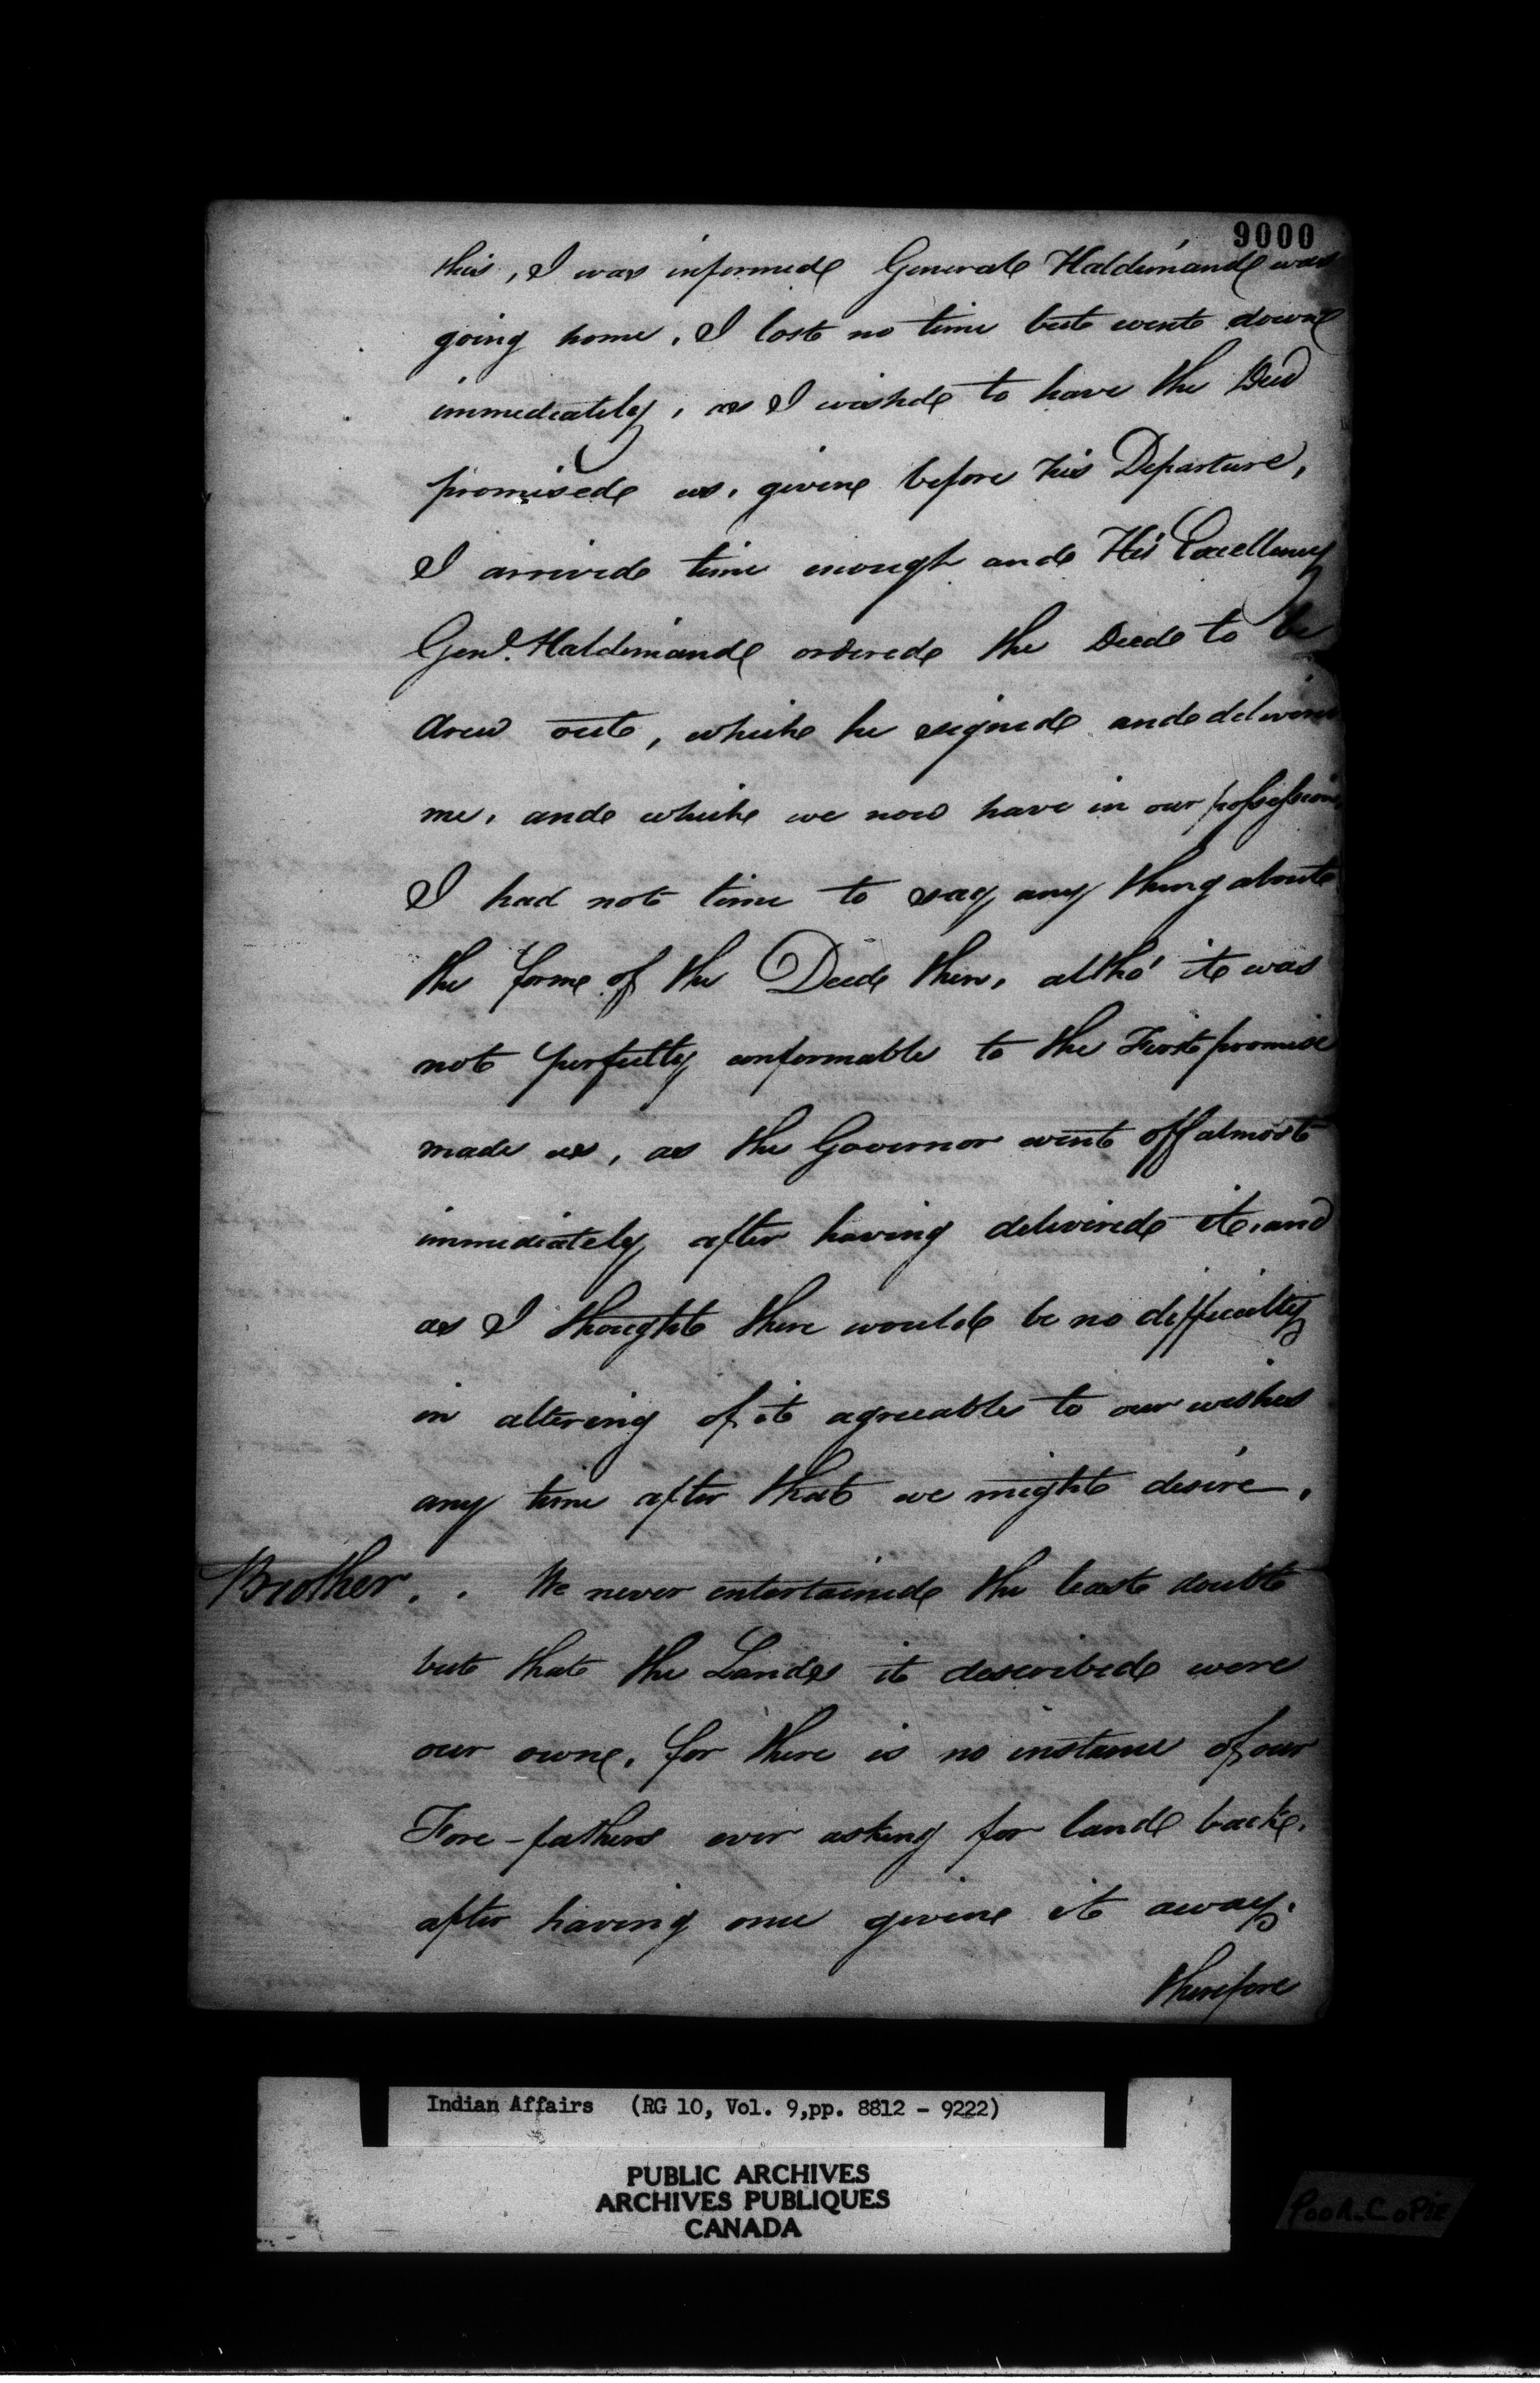 9000
this, I was informed General Haldimand was
going home, I lost no time but went down
immediately, as I wished to have the Deed
promised us, given before his Departure,
I arrived time enough and His Excellency
Genl. Haldimand ordered the Deed to be
drew out, which he signed and deliver'd
me, and which we now have in our possession,
I had not time to say any thing about
the form of the Deed then, altho' it was
not perfectly conformable to the First promise
made us, as the Governor went off almost
immediately after having delivered it, and
as I thought there would be no difficulty
in altering of it agreeable to our wishes
any time after that we might desire.
Brother . . We never entertained the least doubt
but that the Lands it described were
our own, for there is no instance of our
Fore-fathers ever asking for land back,
after having once given it away.
therefore
Indian Affairs (RG 10, Vol. 9,pp. 8812 - 9222)
PUBLIC ARCHIVES
ARCHIVES PUBLIQUES
CANADA
POOR COPIE